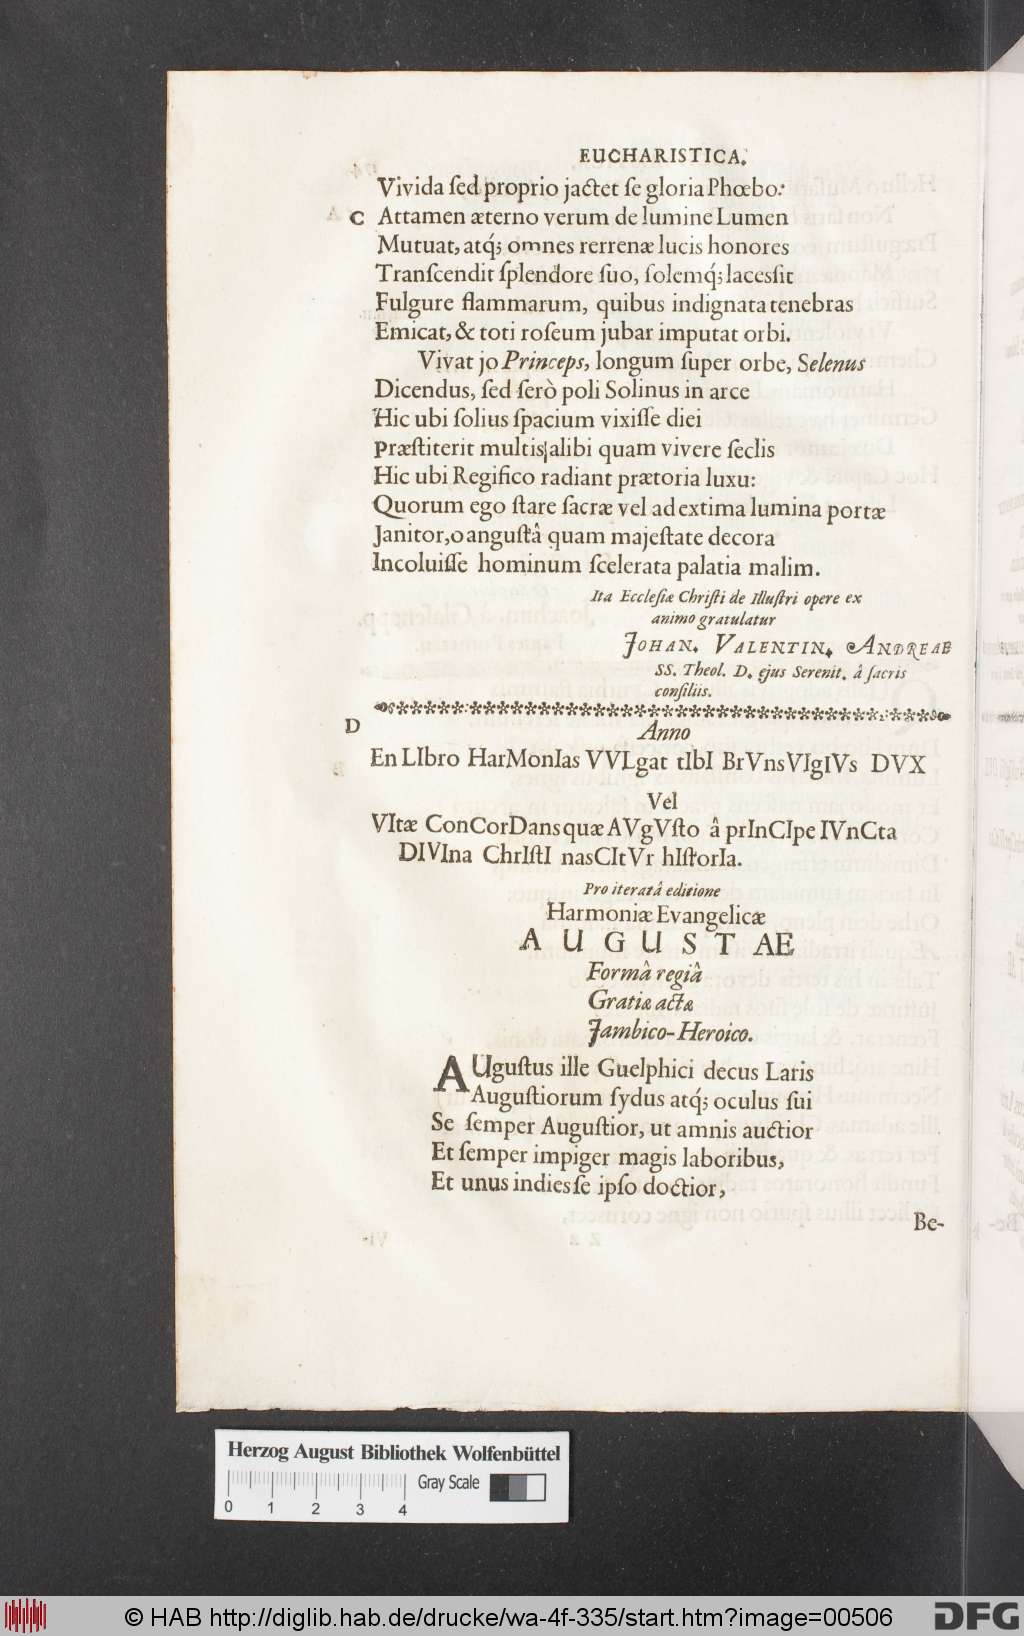 EUCHARISTICA.
Vivida ſed proprio jactet ſe gloria Phœbo:
C Attamen æterno verum de lumine Lumen
Mutuat, atq́; omnes terrenæ lucis honores
Tranſcendit ſplendore ſuo, ſolemq́; lacesſit
Fulgure flammarum, quibus indignata tenebras
Emicat, & toti roſeum jubar imputat orbi.
Vivat jo Princeps, longum ſuper orbe, Selenus
Dicendus, ſed ſerò poli Solinus in arce
Hic ubi ſolius ſpacium vixiſſe diei
Præſtiterit multis alibi quam vivere ſeclis
Hic ubi Regifico radiant prætoria luxu:
Quorum ego ſtare ſacræ vel ad extima lumina portæ
Janitor, o anguſtâ quam majeſtate decora
Incoluiſſe hominum ſcelerata palatia malim.
Ita Eccleſiæ Chriſti de Illuſtri opere ex
animo gratulatur
JOHAN. VALENTIN. ANDREAE
SS. Theol. D. ejus Serenit. â ſacris
conſiliis.
D
Anno
En LIbro HarMonIas VVLgat tIbI BrVnsVIgIVs DVX
Vel
VItæ ConCorDans quæ AVgVſto â prInCIpe IVnCta
DIVIna ChrIſtI nasCItVr hIſtorIa.
Pro iteratâ editione
Harmoniæ Evangelicæ
AUGUSTAE
Formâ regiâ
Gratiæ actæ
Jambico-Heroico.
AUguſtus ille Guelphici decus Laris
Auguſtiorum ſydus atq́; oculus ſui
Se ſemper Auguſtior, ut amnis auctior
Et ſemper impiger magis laboribus,
Et unus indies ſe ipſo doctior,
Be-
Herzog August Bibliothek Wolfenbüttel
Gray Scale
0 1 2 3 4
© HAB http://diglib.hab.de/drucke/wa-4f-335/start.htm?image=00506
DFG